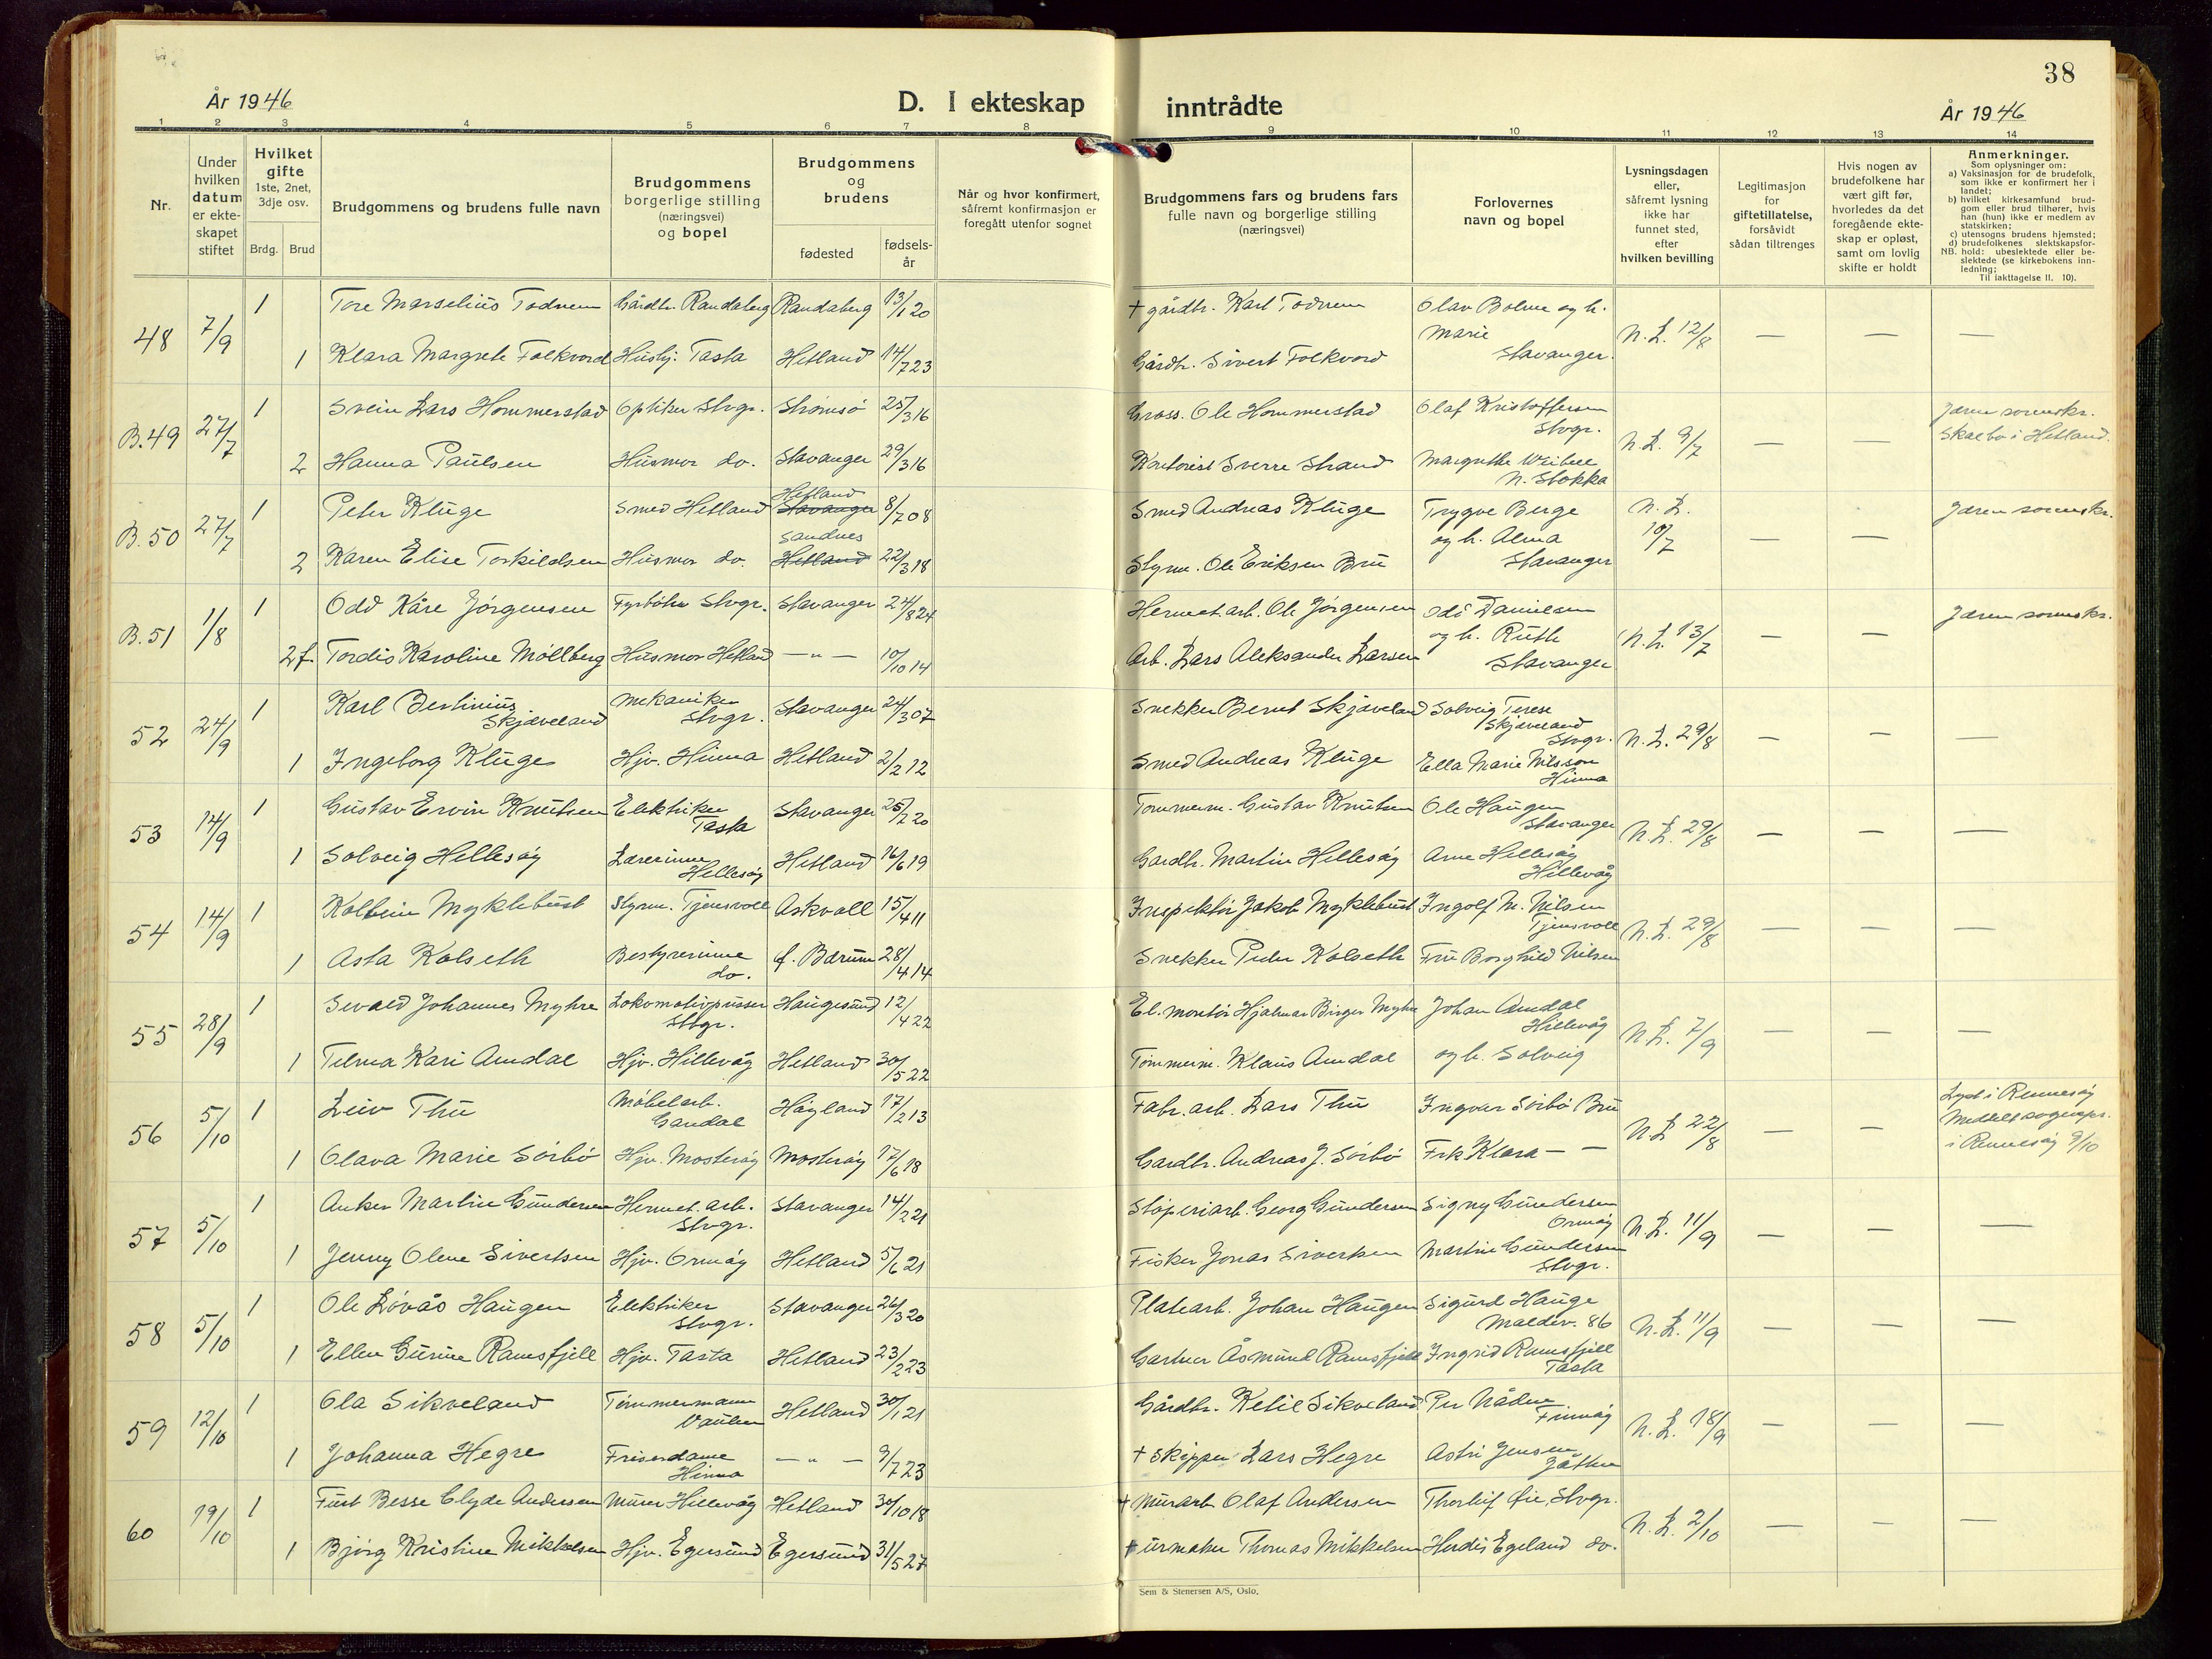 38
År 1946
D. I ekteskap inntrådte
År 1946
1 2 3 4 5 6 7 8 9 10 11 12 13 14
Nr.
Under hvilken datum er ekteskapet stiftet
Hvilket gifte 1ste, 2net, 3dje osv.
Brdg. Brud
Brudgommens og brudens fulle navn
Brudgommens borgerlige stilling (næringsvei) og bopel
Brudgommens og brudens
fødested
fødsels-år
Når og hvor konfirmert, såfremt konfirmasjon er foregått utenfor sognet
Brudgommens fars og brudens fars fulle navn og borgerlige stilling (næringsvei)
Forlovernes navn og bopel
Lysningsdagen eller, såfremt lysning ikke har funnet sted, efter hvilken bevilling
Legitimasjon for giftetillatelse, forsåvidt sådan tiltrenges
Hvis nogen av brudefolkene har vært gift før, hvorledes da det foregående ekteskap er opløst, samt om lovlig skifte er holdt
Anmerkninger.
Som oplysninger om:
a) Vaksinasjon for de brudefolk, som ikke er konfirmert her i landet;
b) hvilket kirkesamfund brudgom eller brud tilhører, hvis han (hun) ikke er medlem av statskirken;
c) utensogns brudens hjemsted;
d) brudefolkenes slektskapsforhold: ubeslektede eller beslektede (se kirkebokens innledning;
NB. Til iakttagelse II. 10).
48 7/9 1 Tore Marselius Todnem Gårdbr. Randaberg Randaberg 13/1 20 + gårdbr. Karl Todnem Olav Bolme og h. Marie Stavanger. N.L. 12/8 — — —
1 Klara Margrete Folkvord Husbj. Tasta Hetland 14/7 23 Gårdbr. Sivert Folkvord
B.49 27/7 1 Svein Lars Hommerstad Optiker Stvgr. Strømsø 25/3 16 Gross. Ole Hommerstad Olaf Kristoffersen Stvgr. N.L. 9/7 — — Jæren sorenskr. Skal bo i Hetland.
2 Hanna Paulsen Husmor do. Stavanger 29/3 16 Kontorist Sverre Strand Margrethe Weibell N. Stokka
B.50 27/7 1 Peter Kluge Smed Hetland Hetland Stavanger 8/7 08 Smed Andreas Kluge Trygve Berge og h. Alma Stavanger N.L. 10/7 — — Jæren sorenskr.
2 Karen Elise Torkildsen Husmor do. Sandnes Hetland 22/3 18 Styrm. Ole Eriksen Bru
B.51 1/8 1 Odd Kåre Jörgensen Fyrböter Stvgr. Stavanger 24/8 24 Hermet.arb. Ole Jörgensen Odd Danielsen og h. Ruth Stavanger N.L. 13/7 — — Jæren sorenskr.
2f. Tordis Karoline Möllberg Husmor Hetland — " — 10/10 14 Arb. Lars Aleksander Larsen
52 24/9 1 Karl Bertinius Skjæveland Mekaniker Stvgr. Stavanger 24/3 07 Snekker Bernt Skjæveland Solveig Terese Skjæveland Stvgr. N.L. 29/8 — — —
1 Ingeborg Kluge Hjv. Hinna Hetland 2/2 12 Smed Andreas Kluge Ella Marie Nilsson Hinna
53 14/9 1 Gustav Ervin Knutsen Elektriker Tasta Stavanger 25/7 20 Tömmerm. Gustav Knutsen Ole Haugen Stavanger N.L. 29/8 — — —
1 Solveig Hillesöy Lærerinne Hillesöy Hetland 16/6 19 Gardbr. Martin Hillesöy Arne Hillesöy Hillevåg
54 14/9 1 Kolbein Myklebust Styrm. Tjensvoll Askvoll 15/4 11 Inspektör Jakob Myklebust Ingolf M. Nilsen Tjensvoll N.L. 29/8 — — —
1 Asta Kolseth Bestyrerinne do. Ö. Bærum 28/4 14 Snekker Peder Kolseth Fru Borghild Nilsen
55 28/9 1 Sevald Johannes Myhre Lokomotivpusser Stvgr. Haugesund 12/4 22 El. montör Hjalmar Birger Myhre Johan Amdal Hillevåg N.L. 7/9 — — —
1 Telma Kari Amdal Hjv. Hillevåg Hetland 30/5 22 Tömmerm. Klaus Amdal og h. Solveig
56 5/10 1 Leiv Thu Möbelarb. Gandal Höyland 17/2 13 Fabr. arb. Lars Thu Ingvar Sörbö Bru N.L. 22/8 — — Lyst i Rennesöy Meddelt sogneprs. i Rennesöy 9/10
1 Olava Marie Sörbö Hjv. Mosteröy Mosteröy 17/6 18 Gardbr. Andreas J. Sörbö Frk Klara — —
57 5/10 1 Anker Martin Gundersen Hermet. arb. Stvgr. Stavanger 14/2 21 Stöperiarb. Georg Gundersen Signy Gundersen Ormöy N.L. 11/9 — — —
1 Jenny Olene Sivertsen Hjv. Ormöy Hetland 5/6 21 Fisker Jonas Sivertsen Martin Gundersen Stvgr.
58 5/10 1 Ole Lövås Haugen Elektriker Stvgr. Stavanger 26/3 20 Platearb. Johan Haugen Sigurd Hauge Madlav. 86 N.L. 11/9 — — —
1 Ellen Gurine Ramsfjell Hjv. Tasta Hetland 23/2 23 Gartner Åsmund Ramsfjell Ingrid Ramsfjell Tasta
59 12/10 1 Ola Sikveland Tömmermann Vaulen Hetland 30/1 21 Gårdbr. Ketil Sikveland Per Nåden Finnöy N.L. 18/9 — — —
1 Johanna Hegre Friserdame Hinna — " — 9/7 23 + skipper Lars Hegre Astri Jensen Jåtten
60 19/10 1 Fust Besse Clyde Andersen Murer Hillevåg Hetland 30/10 18 + Murarb Olaf Andersen Thorleif Öie, Stvgr. N.L. 2/10 — — —
1 Björg Kristine Mikkelsen Hjv. Egersund Egersund 31/5 27 urmaker Thomas Mikkelsen Herdis Egeland do.
Sem & Stenersen A/S, Oslo.